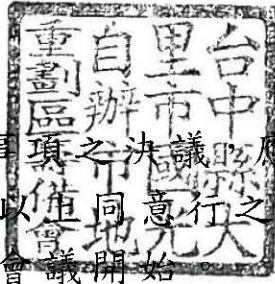 台中縣大
里市國光
自辦市地
重劃區籌備會
事項之決議，應
以上同意行之
會議開始。